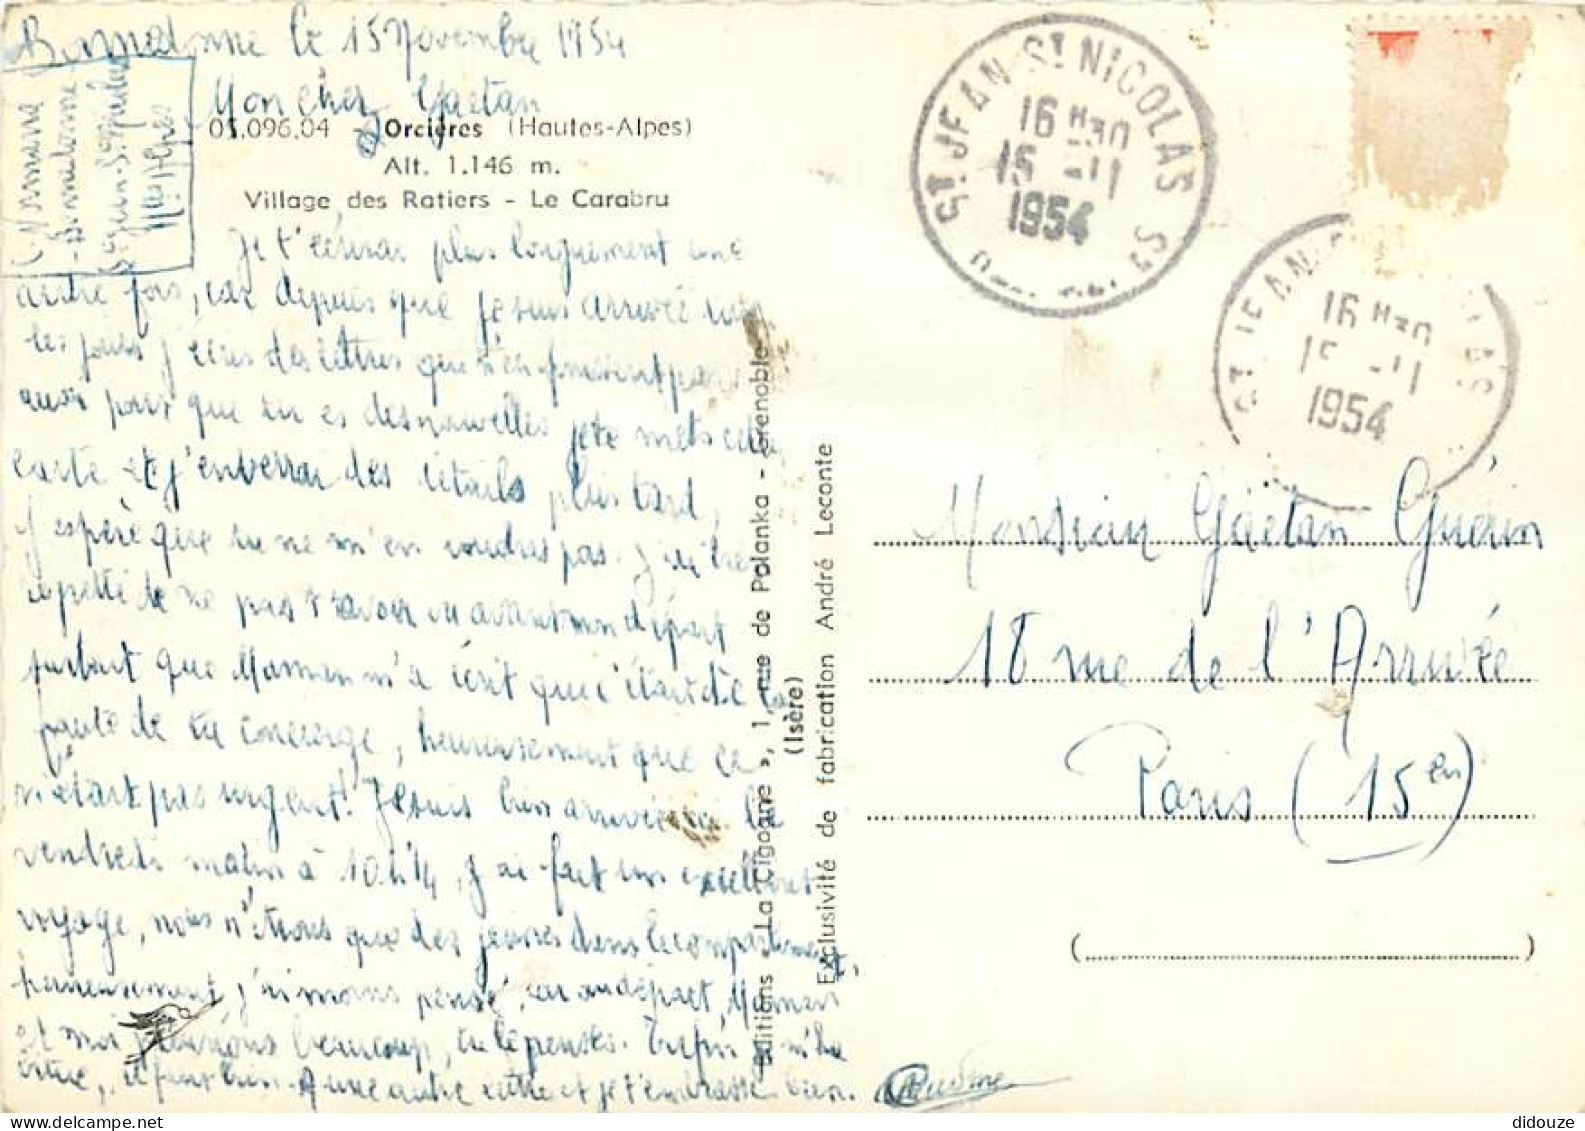 le 15 Novembre 1954
Mon cher Gaëtan
05.096.04 Orcières (Hautes-Alpes)
Alt. 1.146 m.
Village des Ratiers - Le Carabru
Je t'écrirai plus longuement une
autre fois, car depuis que je suis arrivée tous
les jours j'écris des lettres
pour que tu es des nouvelles je te mets cette
carte et j'enverrai des détails plus tard,
j'espère que tu ne m'en voudras pas. J'ai
de ne pas t'avoir vu avant mon départ
surtout que Maman m'a écrit que c'était de la
faute de ta concierge, heureusement que ce
n'était pas urgent! Je suis bien arrivée le
vendredi matin à 10 h 1/4, j'ai fait un excellent
voyage, nous n'étions que des jeunes dans le compartiment,
heureusement, j'ai moins pensé, car au départ, Maman
et moi pleurions beaucoup, tu le penses. Enfin
il faut bien. A une autre lettre et je t'embrasse bien.
ST JEAN ST NICOLAS
16 H30
15 -11
1954
16 H30
15 -11
1954
Editions « La Cigogne », 1, rue de Palanka - Grenoble
(Isère)
Exclusivité de fabrication André Leconte
Monsieur Gaëtan Guérin
18 rue de l'Arrivée
Paris (15en)
( )
didouze